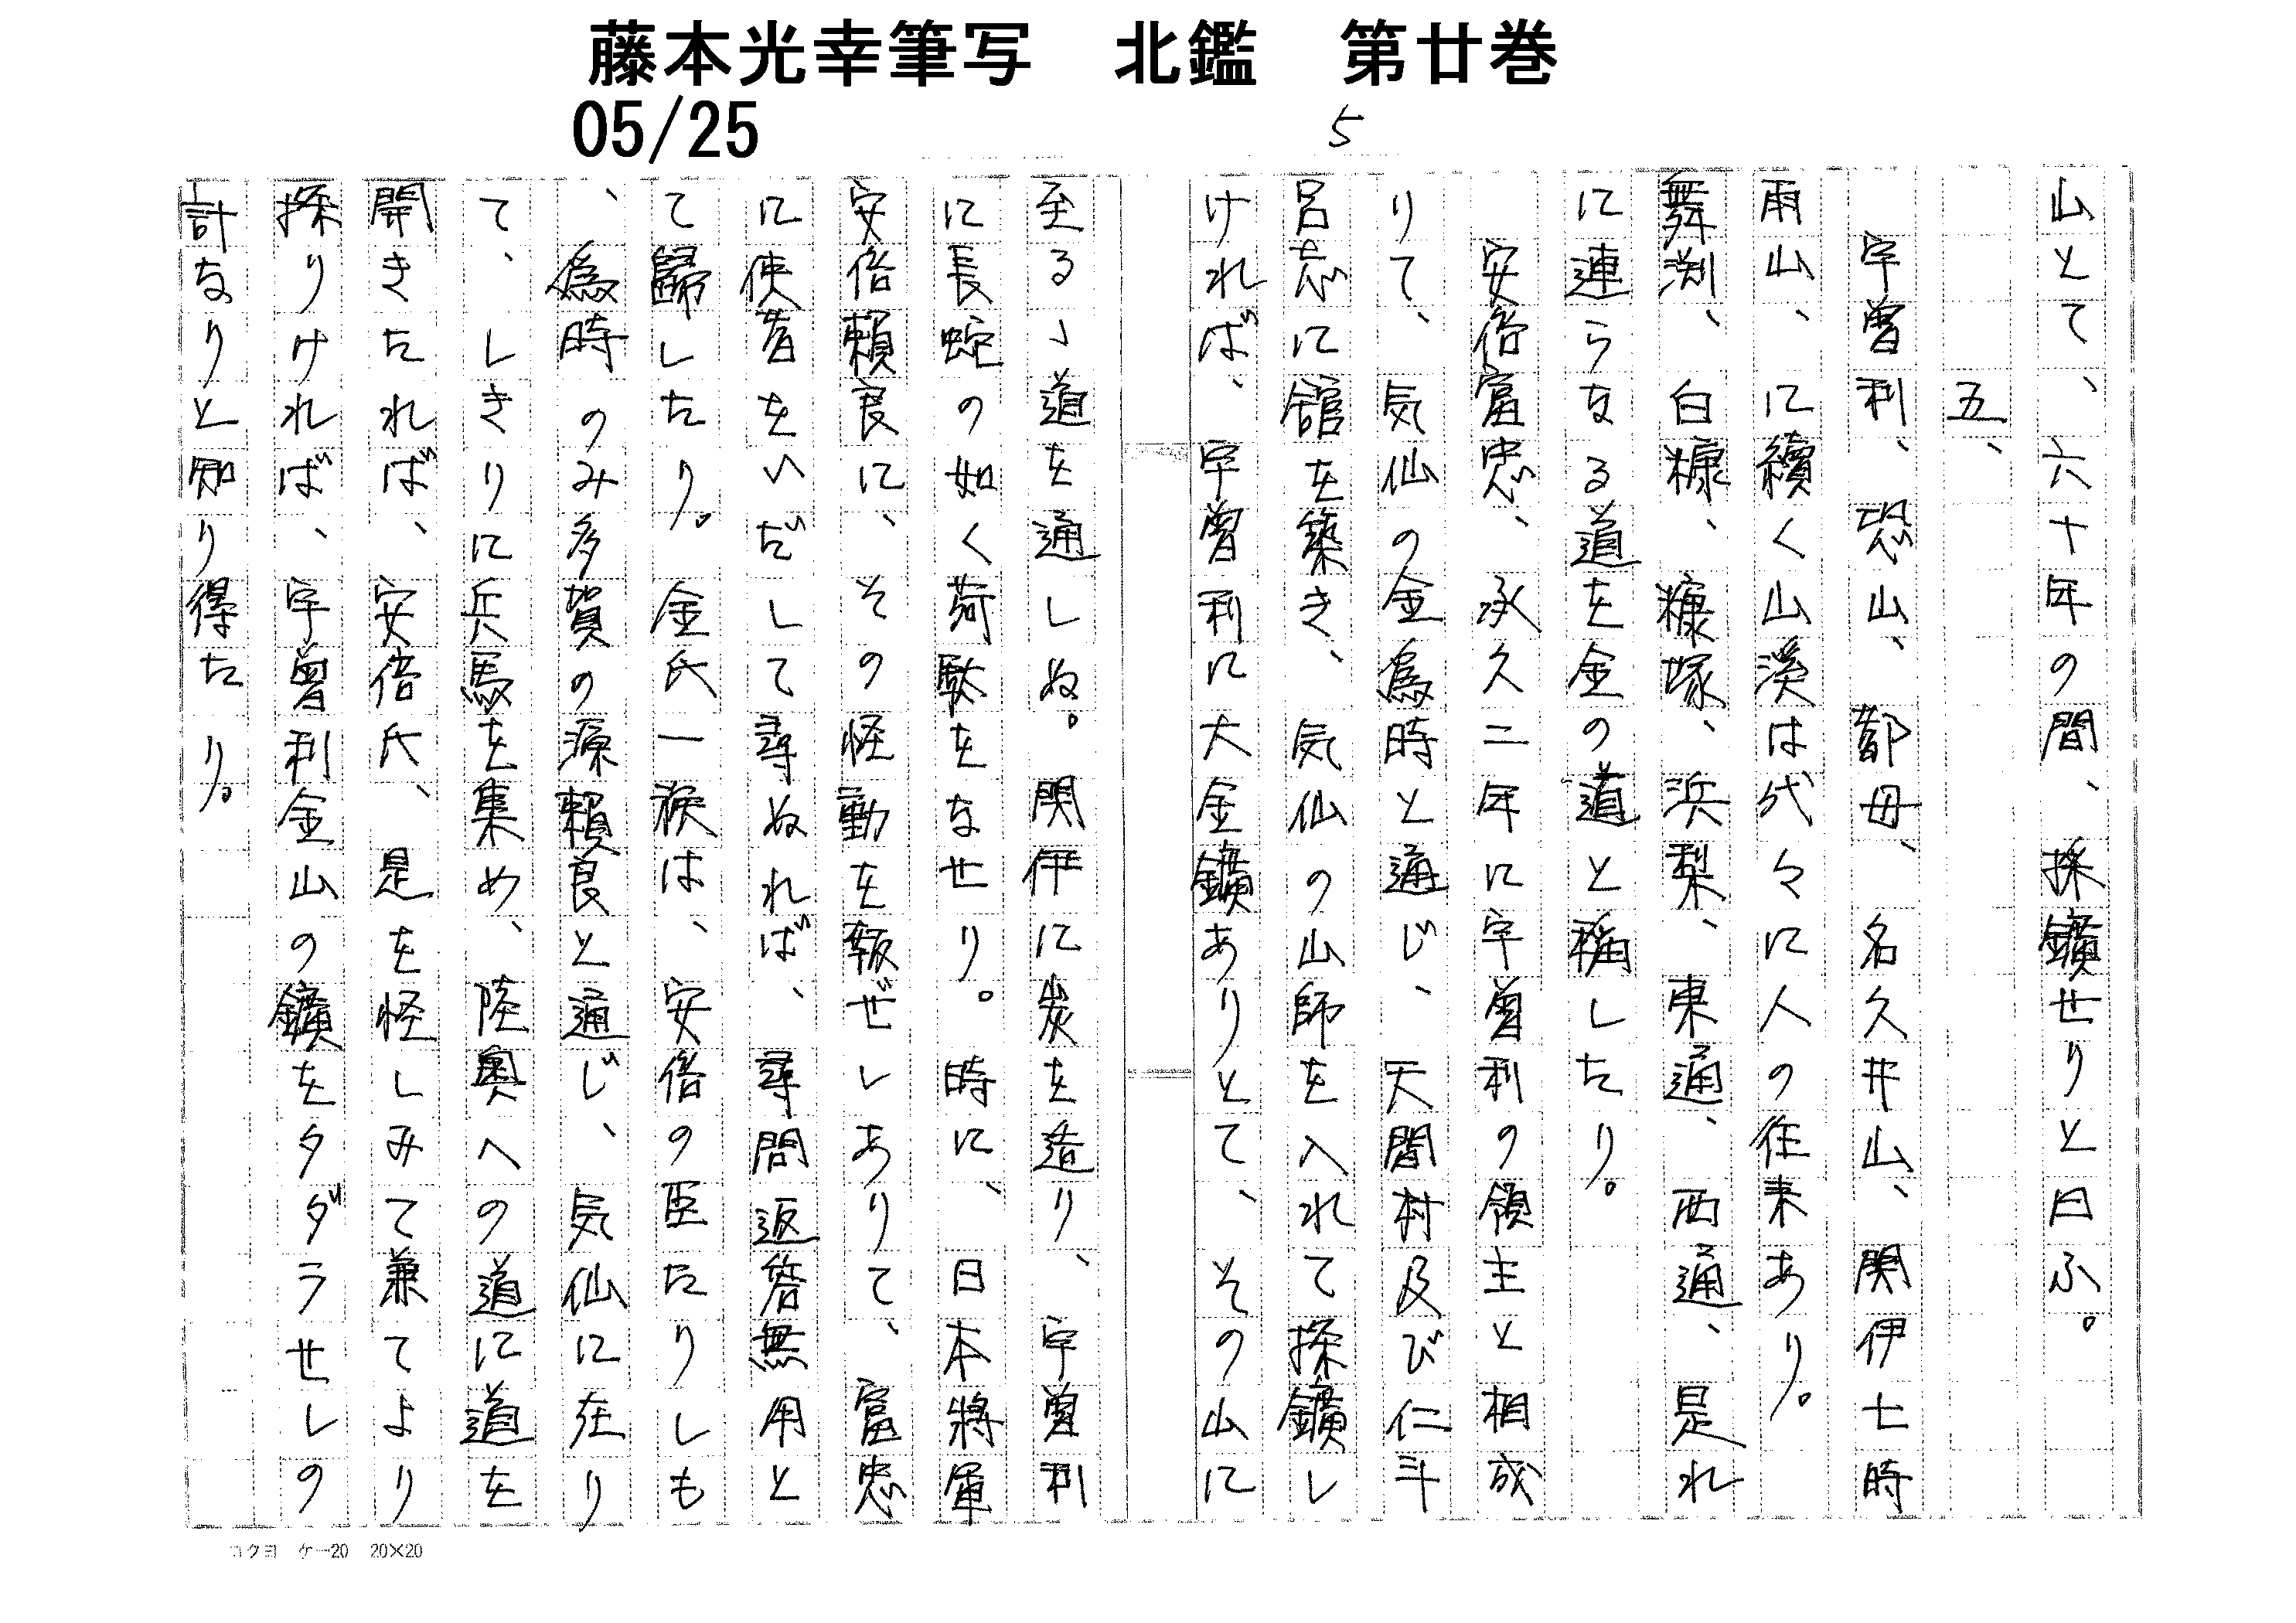 藤本光幸筆写　北鑑　第廿巻
05/25
5
山とて、六十年の間、採鑛せりと曰ふ。
五、
宇曽利、恐山、都母、名久井山、閉伊七時
雨山、に續く山溪は代々に人の往来あり。
舞渕、白糠、糠塚、浜梨、東通、西通、是れ
に連らなる道を金の道と稱したり。
安倍富忠、承久二年に宇曽利の領主と相成
りて、気仙の金為時と通じ、天間村及び仁斗
呂志に舘を築き、気仙の山師を入れて採鑛し
ければ、宇曽利に大金鑛ありとて、その山に
至るゝ道を通しぬ。閉伊に炭を造り、宇曽利
に長蛇の如く荷駄をなせり。時に、日本將軍
安倍賴良に、その怪動を報ぜしありて、富忠
に使者をいだして尋ぬれば、尋問返答無用と
て歸したり。金氏一族は、安倍の臣たりしも
、為時のみ多賀の源賴良と通じ、気仙に在り
て、しきりに兵馬を集め、陸奥への道に道を
開きたれば、安倍氏、是を怪しみて兼てより
採りければ、宇曽利金山の鑛をタダラせしの
計なりと知り得たり。
コクヨ　ケー20　20×20